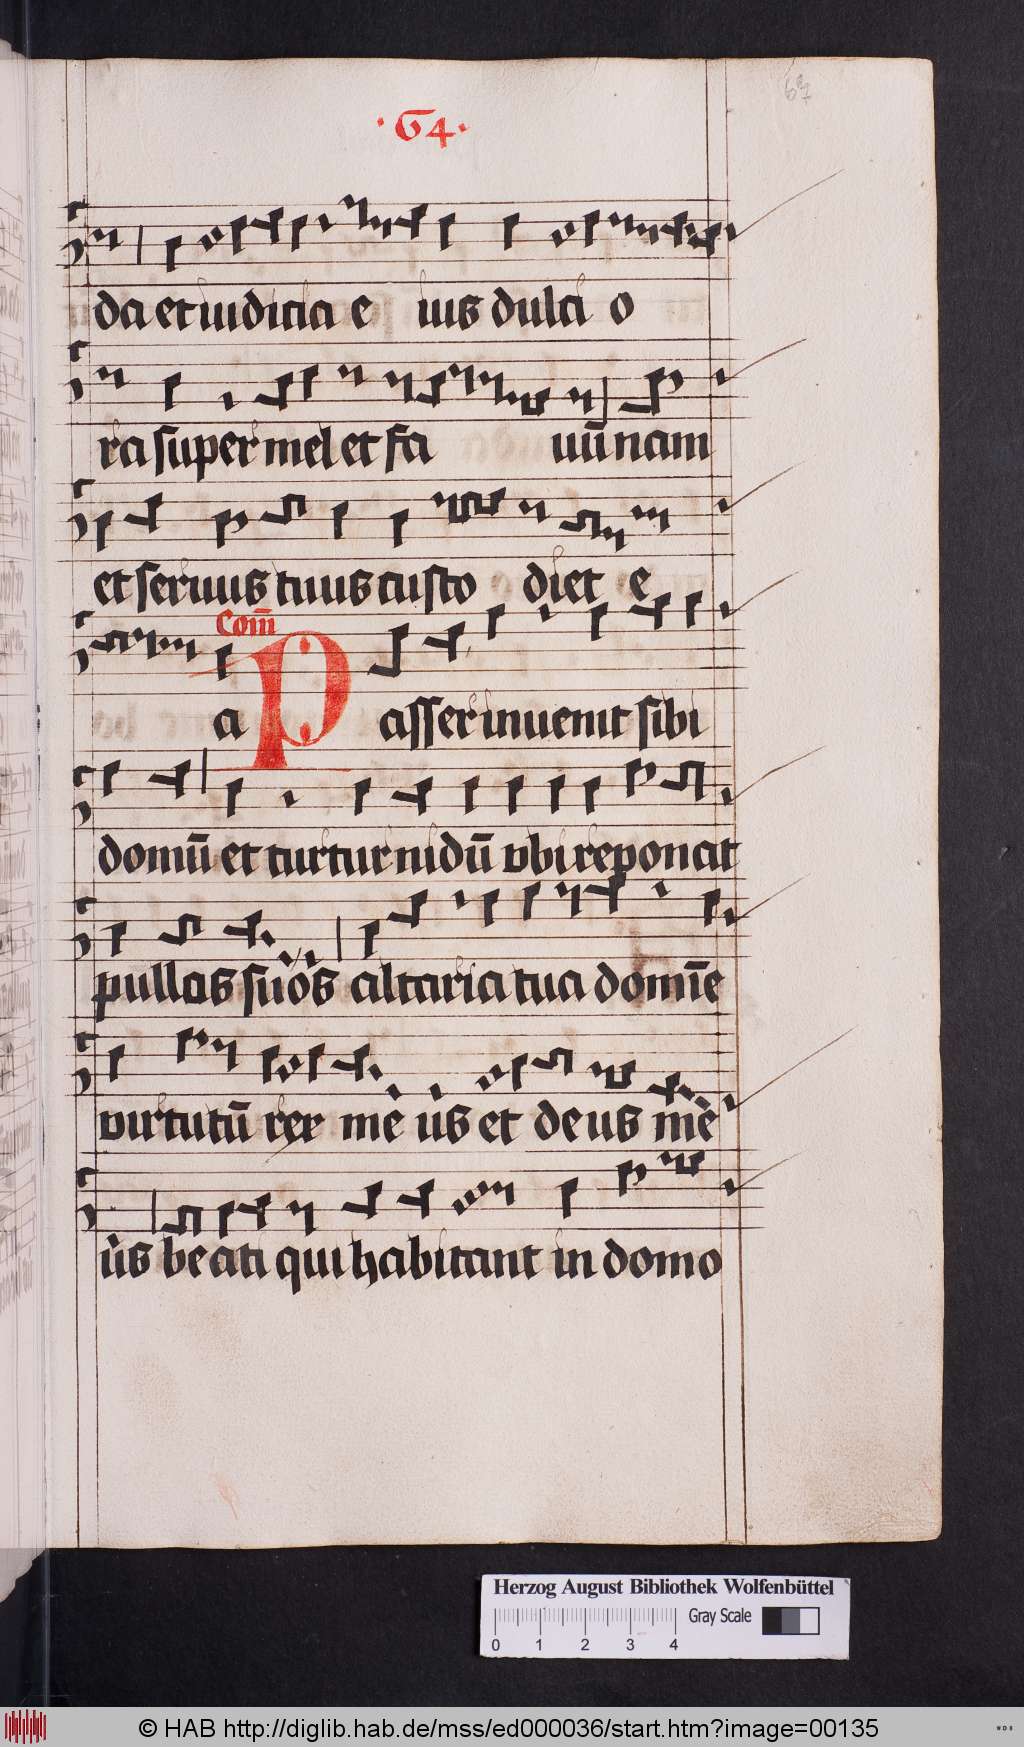 67
·64·
da et iudicia e ius dulci o
ra super mel et fa uū nam
et seruus tuus custo diet e
Com̄
a Passer inuenit sibi
domū et turtur nidū vbi reponat
pullos suos altaria tua domīe
virtutū rex me us et deus me
us beati qui habitant in domo
Herzog August Bibliothek Wolfenbüttel
0 1 2 3 4 Gray Scale
© HAB http://diglib.hab.de/mss/ed000036/start.htm?image=00135